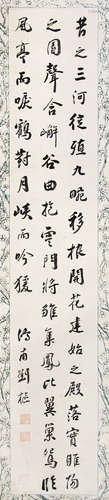 昔之三河徙殖九畹移根開花建始之殿落實睢陽
之園聲含嶰谷曲抱雲門將雛集鳳比翼巢鴛臨
風亭而唳鶴對月峽而吟猨
甫劉